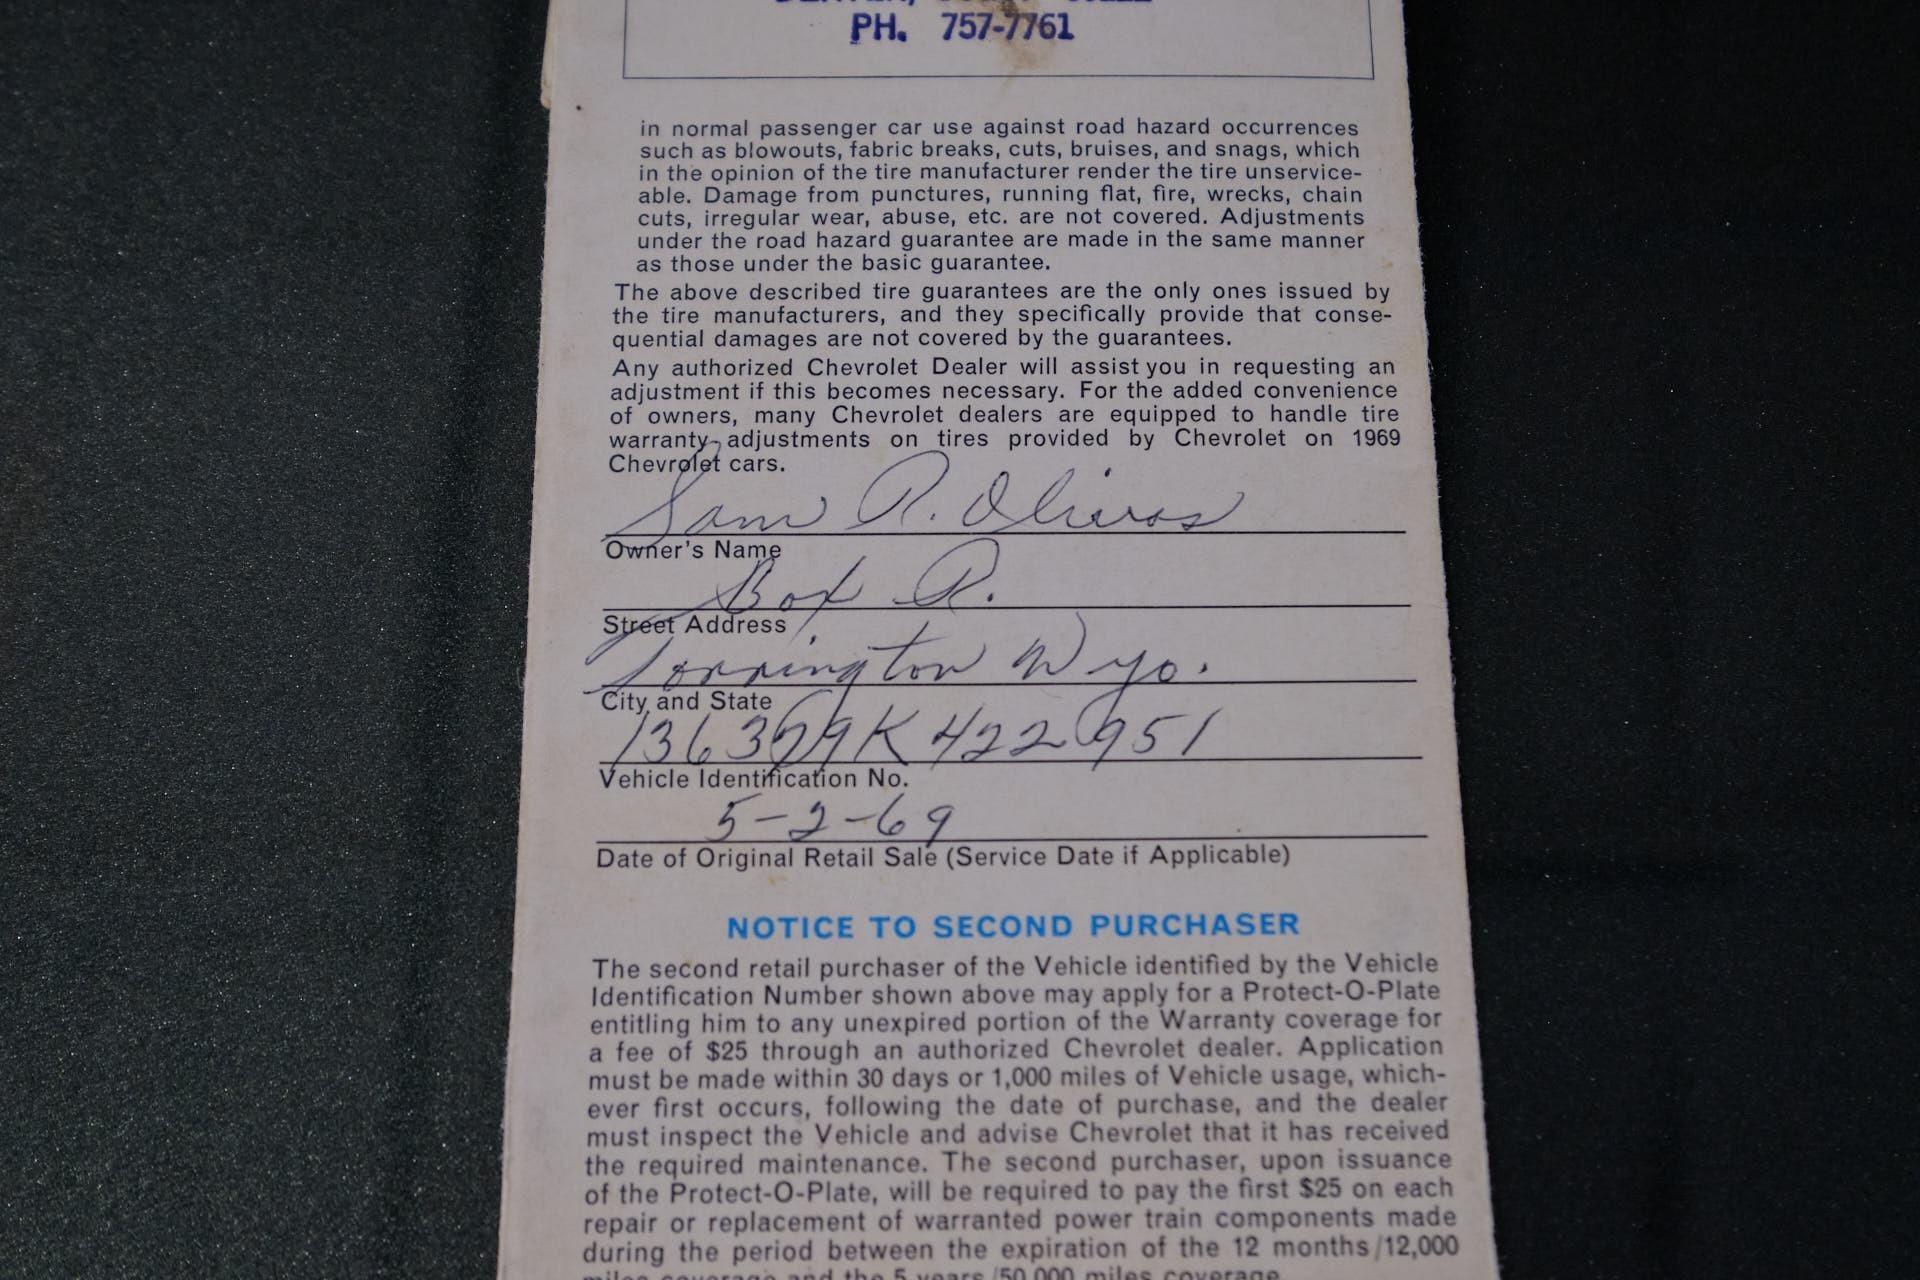 PH. 757-7761
in normal passenger car use against road hazard occurrences
such as blowouts, fabric breaks, cuts, bruises, and snags, which
in the opinion of the tire manufacturer render the tire unservice-
able. Damage from punctures, running flat, fire, wrecks, chain
cuts, irregular wear, abuse, etc. are not covered. Adjustments
under the road hazard guarantee are made in the same manner
as those under the basic guarantee.
The above described tire guarantees are the only ones issued by
the tire manufacturers, and they specifically provide that conse-
quential damages are not covered by the guarantees.
Any authorized Chevrolet Dealer will assist you in requesting an
adjustment if this becomes necessary. For the added convenience
of owners, many Chevrolet dealers are equipped to handle tire
warranty adjustments on tires provided by Chevrolet on 1969
Chevrolet cars.
Sam R. Olivas
Owner's Name
Box R.
Street Address
Torrington Wyo.
City and State
136379K422951
Vehicle Identification No.
5-2-69
Date of Original Retail Sale (Service Date if Applicable)
NOTICE TO SECOND PURCHASER
The second retail purchaser of the Vehicle identified by the Vehicle
Identification Number shown above may apply for a Protect-O-Plate
entitling him to any unexpired portion of the Warranty coverage for
a fee of $25 through an authorized Chevrolet dealer. Application
must be made within 30 days or 1,000 miles of Vehicle usage, which-
ever first occurs, following the date of purchase, and the dealer
must inspect the Vehicle and advise Chevrolet that it has received
the required maintenance. The second purchaser, upon issuance
of the Protect-O-Plate, will be required to pay the first $25 on each
repair or replacement of warranted power train components made
during the period between the expiration of the 12 months/12,000
miles coverage and the 5 years/50,000 miles coverage.